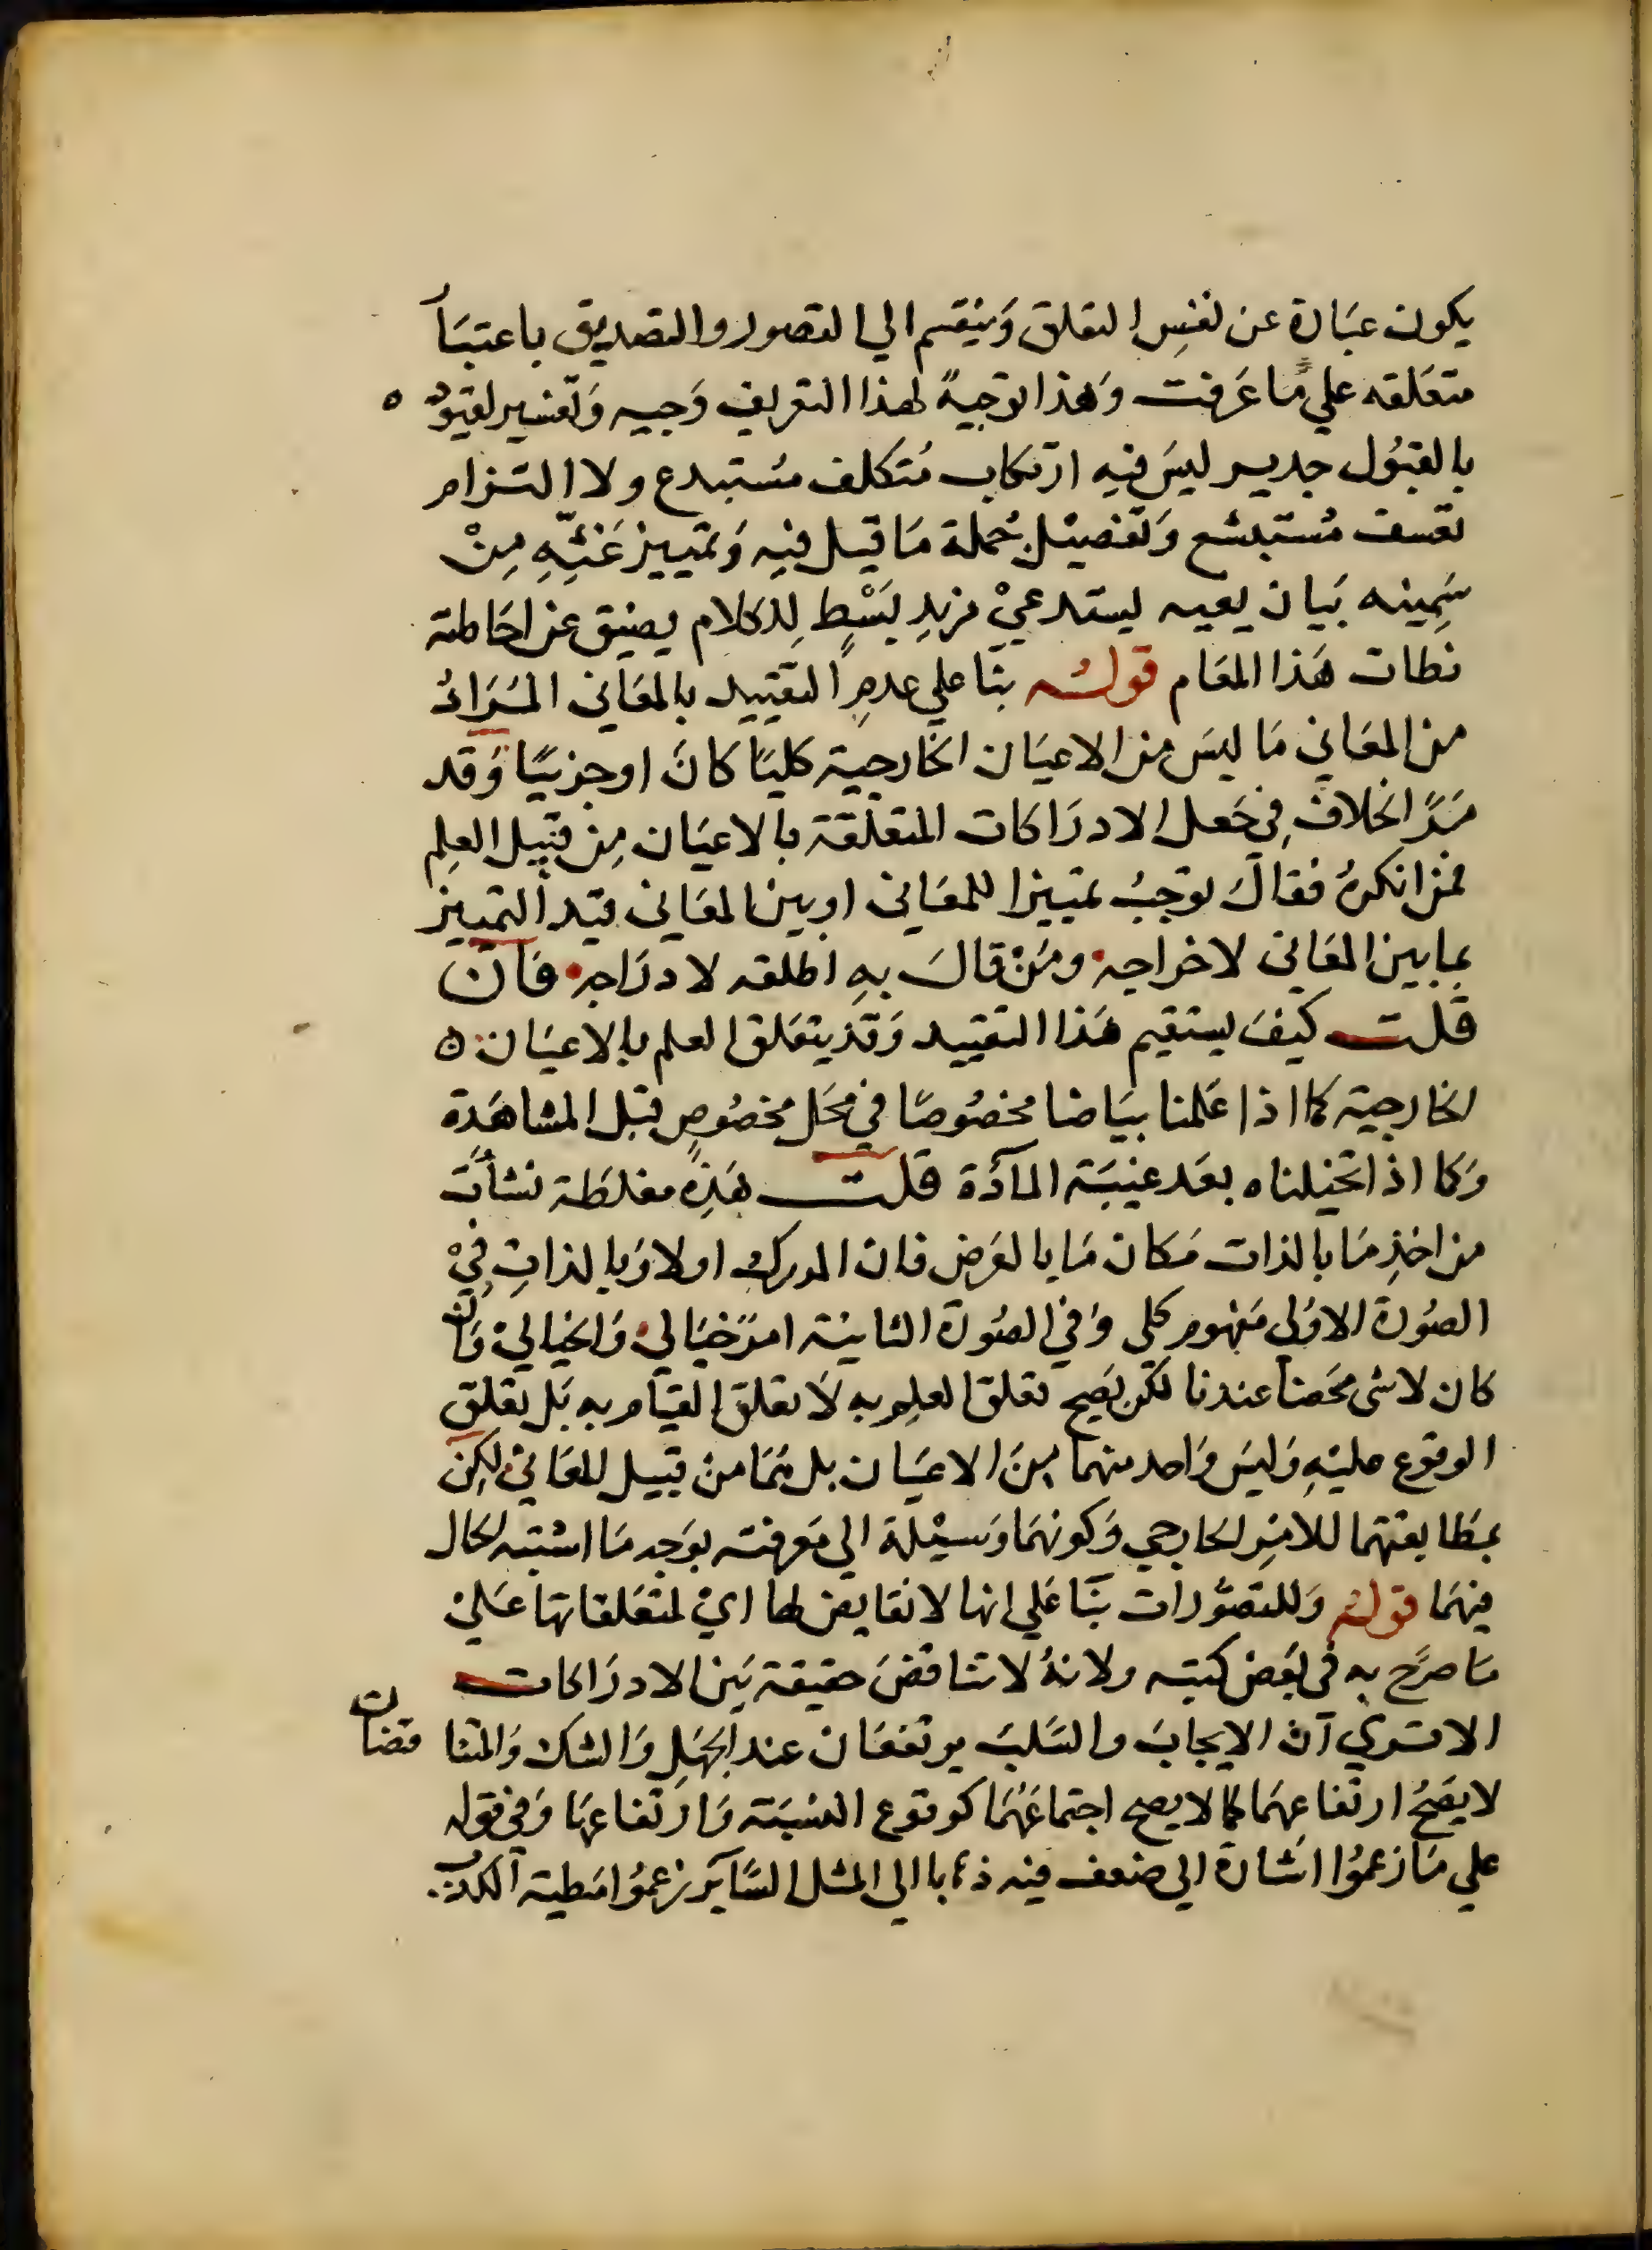 يكون عبَارة عن نفسِ التعلق وَينقسم الي التصور والتصديق باعتبَار
متعَلقه علي مَا عَرفت وَهذا توجيهٌ لهذا التعريف وَجيه وَتفسير لقيودِه
بالقبُول جدير ليسَ فيه ارتكاب مُتكلف مسُتبدع ولا التزام
تعسف مُستبشع وَتفصيْل جُملة مَا قيل فيه وَتمييز غَثِّهِ مِنْ
سَمِينه بَيان يعيه يستدعيْ مزيدِ بَسْطٍ لِلكلام يضيق عن احَاطته
نطاق هَذا المقام قولـه بنَا علي عدمِ التقييد بالمعَاني المُرَادُ
من المعَاني مَا ليسَ من الاعيَان الخارجية كليَّا كانَ او جزئيًا وَقد
مَرَّ الخلافُ فِي جَعل الادرَاكات المتعلقة بالاعيَان مِن قبيل العِلم
فمن انكرهُ فقالَ توجبُ تمييزا للمعَاني او بين المعَاني قيد التمييز
بما بين المعَاني لاخراجه ومَنْ قالَ بهِ اطلقه لادرَاجه فَان
قلت كيفَ يستقيم هَذا التقييد وَقد يتعَلق العلم بالاعيَان
الخارجية كما اذا عَلمنا بيَاضا مخصُوصًا في محَل مخصُوصٍ قبل المشاهَدة
وَكما اذا تخيلناه بعَد غيبَة المادَّة قلت هَذِه مغلطَة نشأت
من اخذِ مَا بالذات مَكان مَا بالعَرض فان المدرك اولا وَبالذاتِ فِيْ
الصُورة الاوُلى مَفهوم كلى وَفي الصُورة الثانية امرٌ خيَالي وَالخيالي وَان
كان لا شى محَضنا عندنا لكن يَصح تعلق العلِم به لاَ تعلق القيَام به بَل تعلق
الوقوع عليْهِ وَليسَ وَاحد منهما مِنَ الاعيَان بل همَا منْ قبيل المعَاني لكِن
بمطَابقتهما للامْرِ الخارجي وَكونهمَا وَسيْلة الي مَعرفته بوَجه مَا اشتبه الحَال
فيهمَا قوله وَللتصَوُّرات بنَا عَلي انها لا نقايض لها ايْ لمتعَلقاتها عَليْ
مَا صرَّح به فى بَعض كتبه ولانهُ لا تناقضَ حقيقة بَين الادرَاكات
الا تري ان الايجابَ والسَلبَ يرتفعَان عند الجَهلِ وَالشك وَالمتناقضان
لا يَصحُ ارتفاعهمَا كما لا يصح اجتماعَهُمَا كوقوع النسْبَة وَارتفاعهَا وَفي قوله
علي مَا زعمُوا اشَارة الي ضعف فيه ذهابا الي المثل السَّاير زعمُوا مَطية الكذب